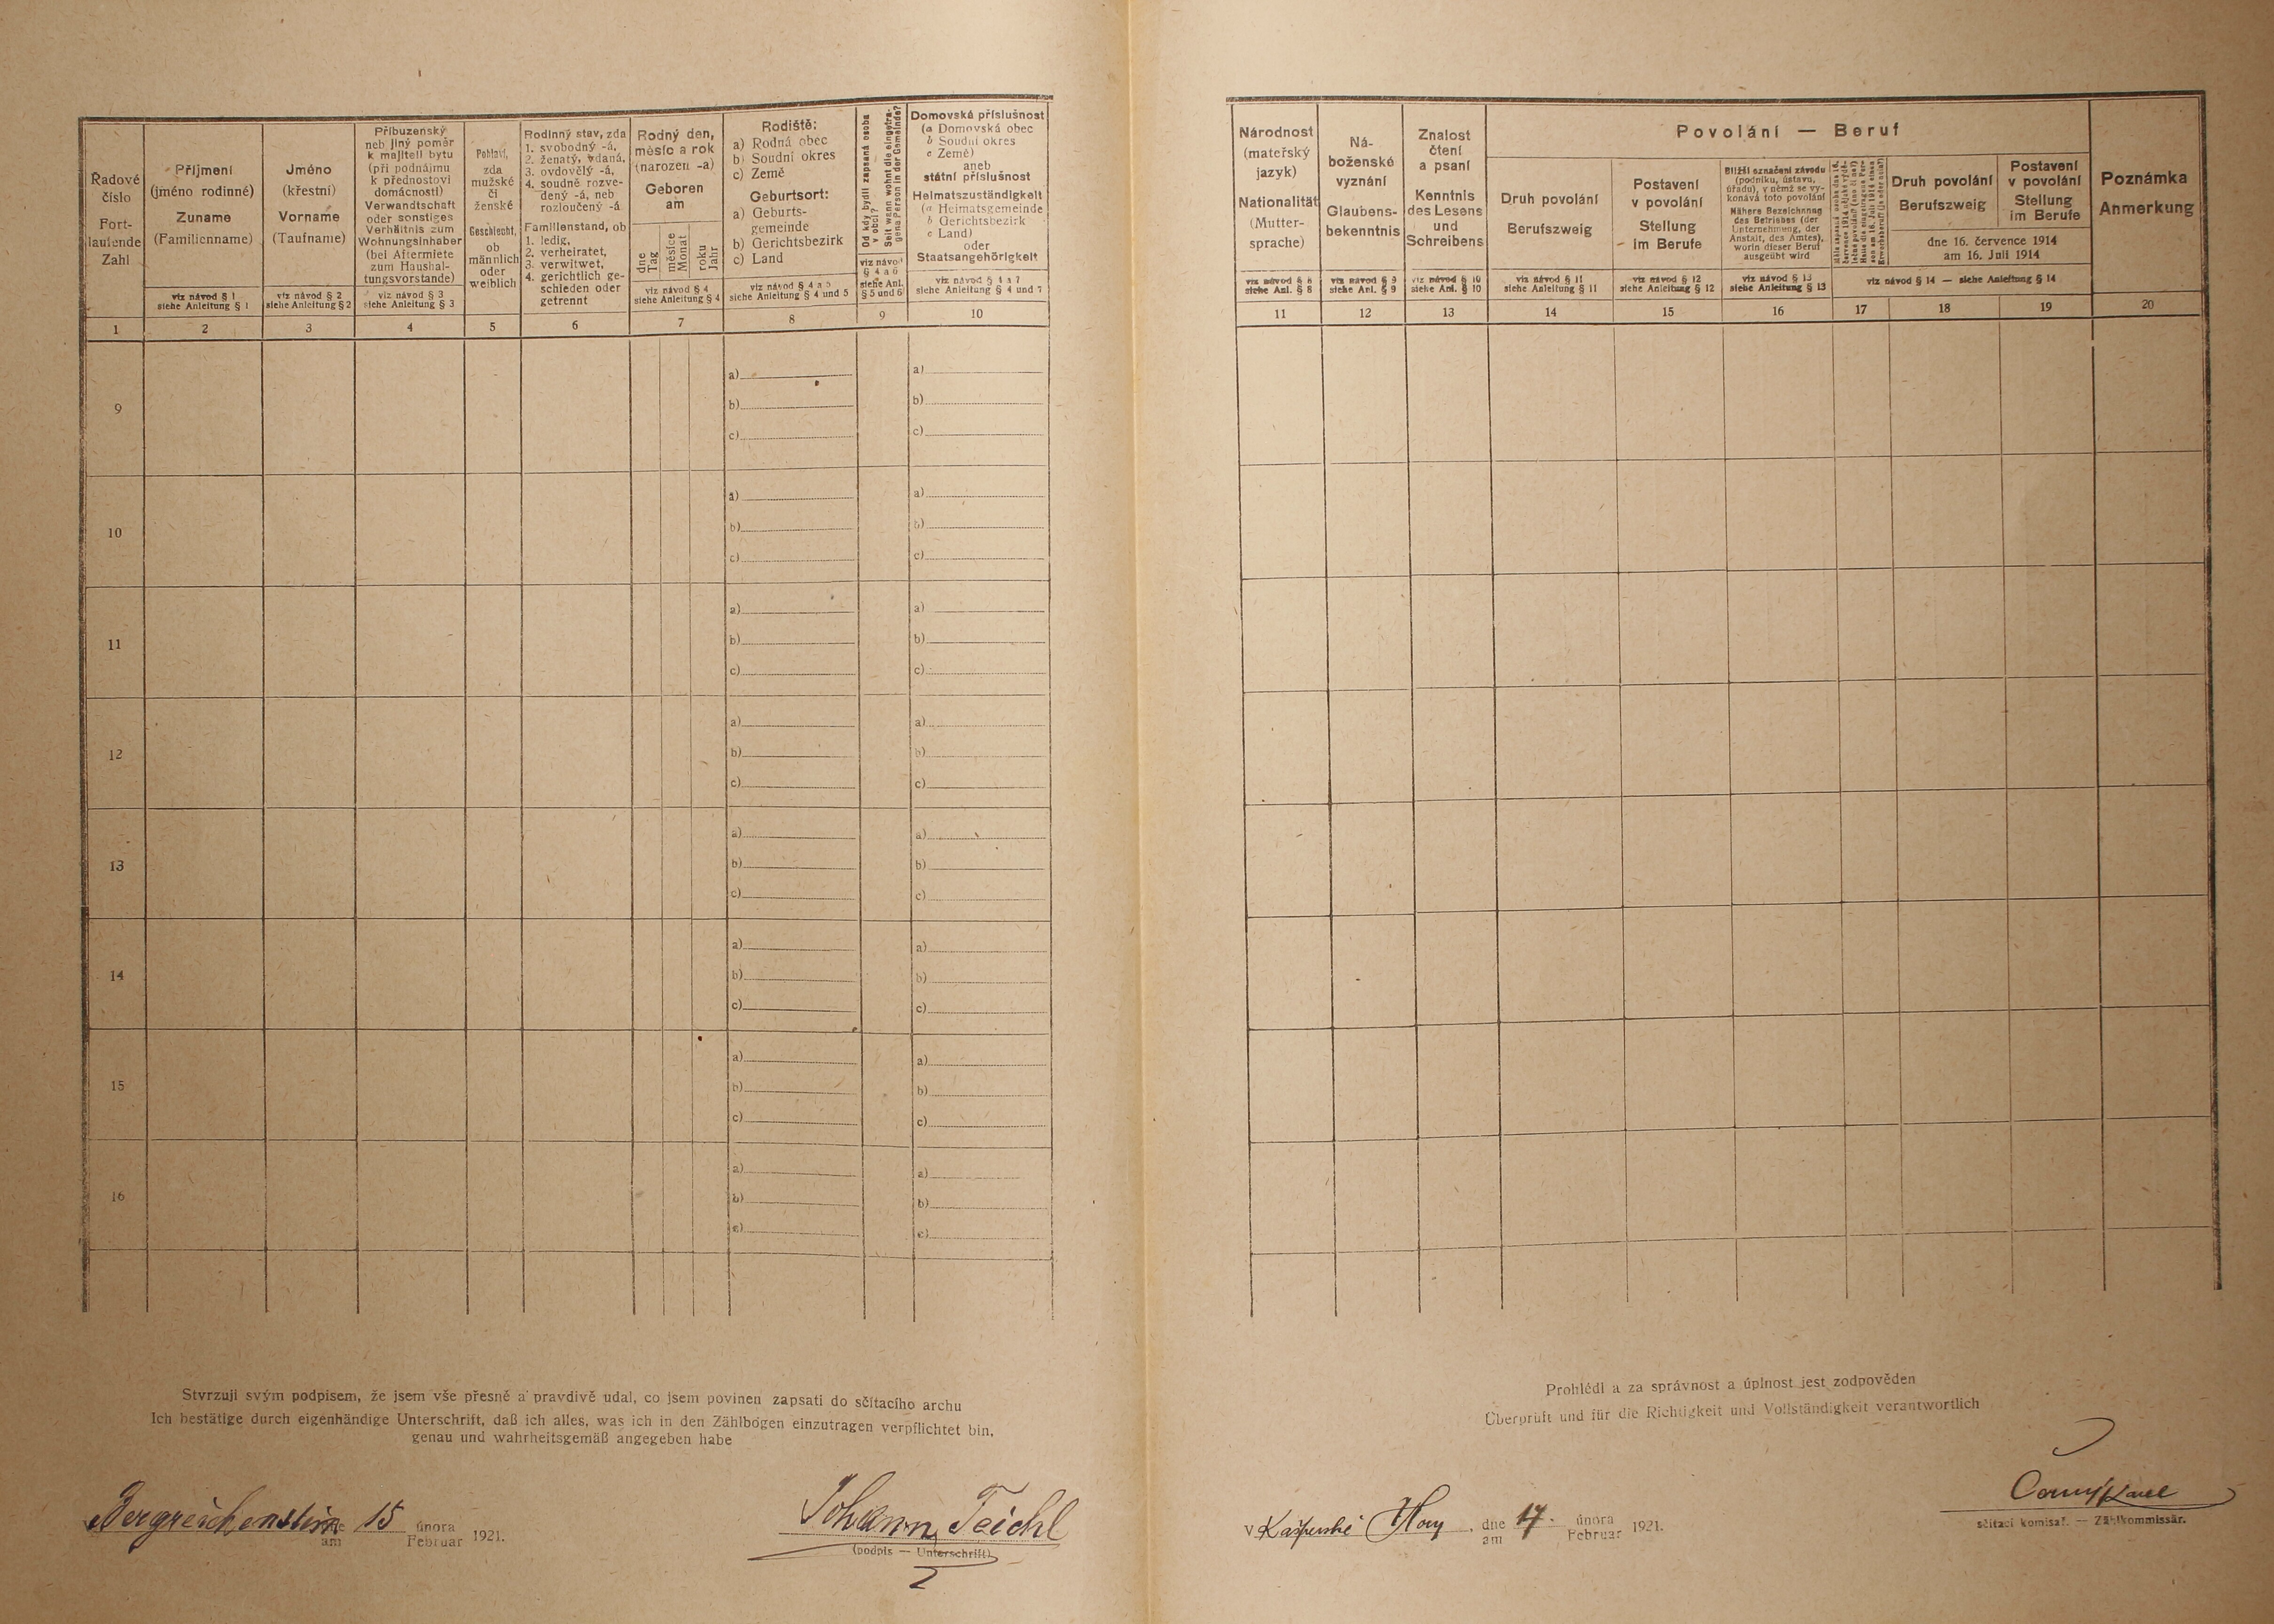 Řadové
číslo
Fort-
laufende
Zahl
1
Příjmení
(jméno rodinné)
Zuname
(Familienname)
viz návod § 1
siehe Anleitung § 1
2
Jméno
(křestní)
Vorname
(Taufname)
viz návod § 2
siehe Anleitung § 2
3
Příbuzenský
neb jiný poměr
k majiteli bytu
(při podnájmu
k přednostovi
domácnosti)
Verwandtschaft
oder sonstiges
Verhältnis zum
Wohnungsinhaber
(bei Aftermiete
zum Haushal-
tungsvorstande)
viz návod § 3
siehe Anleitung § 3
4
Pohlaví,
zda
mužské
či
ženské
Geschlecht,
ob
männlich
oder
weiblich
5
Rodinný stav, zda
1. svobodný -á,
2. ženatý, vdaná,
3. ovdovělý -á,
4. soudně rozve-
dený -á, neb
rozloučený -á
Familienstand, ob
1. ledig,
2. verheiratet,
3. verwitwet,
4. gerichtlich ge-
schieden oder
getrennt
6
Rodný den,
měsíc a rok
(narozen -a)
Geboren
am
dne
Tag
měsíce
Monat
roku
Jahr
viz návod § 4
siehe Anleitung § 4
7
Rodiště:
a) Rodná obec
b) Soudní okres
c) Země
Geburtsort:
a) Geburts-
gemeinde
b) Gerichtsbezirk
c) Land
viz návod § 4 a 5
siehe Anleitung § 4 und 5
8
Od kdy bydlí zapsaná osoba
v obci?
Seit wann wohnt die eingetra-
gene Person in der Gemeinde?
viz návod
§ 4 a 6
siehe Anl.
§ 5 und 6
9
Domovská příslušnost
(a Domovská obec
b Soudní okres
c Země)
aneb
státní příslušnost
Heimatszuständigkeit
(a Heimatsgemeinde
b Gerichtsbezirk
c Land)
oder
Staatsangehörigkeit
viz návod § 4 a 7
siehe Anleitung § 4 und 7
10
Národnost
(mateřský
jazyk)
Nationalität
(Mutter-
sprache)
viz návod § 8
siehe Anl. § 8
11
Ná-
boženské
vyznání
Glaubens-
bekenntnis
viz návod § 9
siehe Anl. § 9
12
Znalost
čtení
a psaní
Kenntnis
des Lesens
und
Schreibens
viz návod § 10
siehe Anl. § 10
13
Povolání — Beruf
Druh povolání
Berufszweig
viz návod § 11
siehe Anleitung § 11
14
Postavení
v povolání
Stellung
im Berufe
viz návod § 12
siehe Anleitung § 12
15
Bližší označení závodu
(podniku, ústavu,
úřadu), v němž se vy-
konává toto povolání
Nähere Bezeichnung
des Betriebes (der
Unternehmung, der
Anstalt, des Amtes),
worin dieser Beruf
ausgeübt wird
viz návod § 13
siehe Anleitung § 13
16
17
Druh povolání
Berufszweig
Postavení
v povolání
Stellung
im Berufe
dne 16. července 1914
am 16. Juli 1914
viz návod § 14 — siehe Anleitung § 14
18
19
Poznámka
Anmerkung
20
9
a) a)
b) b)
c) c)
10
a) a)
b) b)
c) c)
11
a) a)
b) b)
c) c)
12
a) a)
b) b)
c) c)
13
a) a)
b) b)
c) c)
14
a) a)
b) b)
c) c)
15
a) a)
b) b)
c) c)
16
a) a)
b) b)
c) c)
Stvrzuji svým podpisem, že jsem vše přesně a pravdivě udal, co jsem povinen zapsati do sčítacího archu
Ich bestätige durch eigenhändige Unterschrift, daß ich alles, was ich in den Zählbogen einzutragen verpflichtet bin,
genau und wahrheitsgemäß angegeben habe
Bergreichenstein 15 února 1921.
am Februar
Johann Teichl
(podpis — Unterschrift)
Prohlédl a za správnost a úplnost jest zodpověden
Überprüft und für die Richtigkeit und Vollständigkeit verantwortlich
v Kašperské Hory, dne 17. února 1921.
am Februar
sčítací komisař. — Zählkommissär.